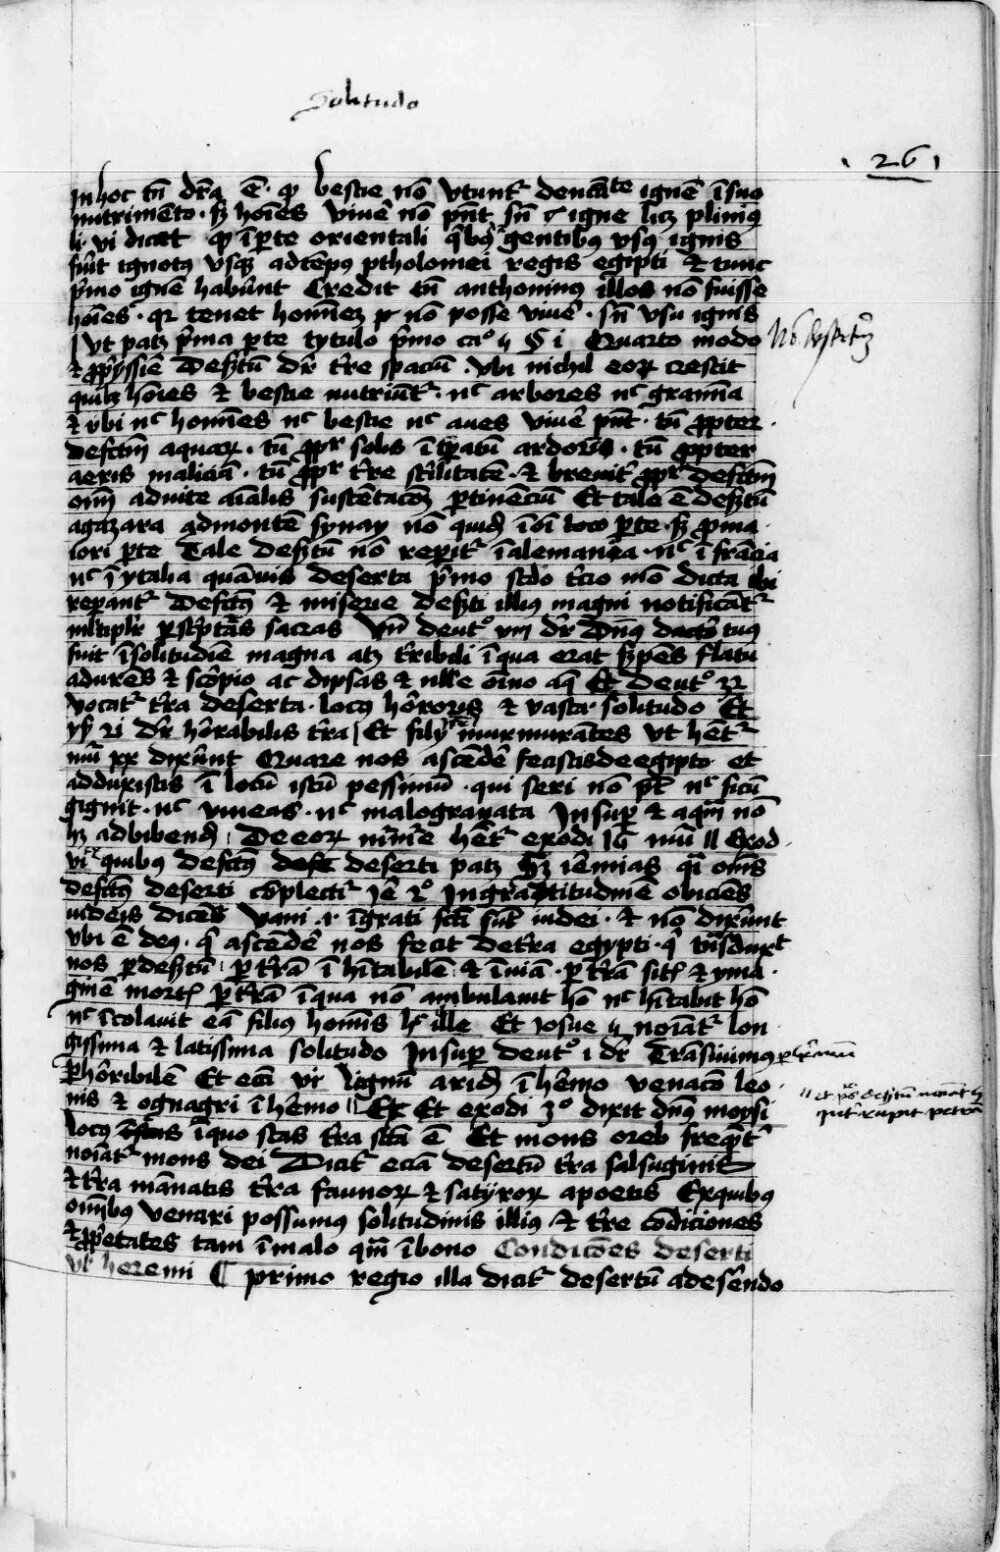 Solitudo
261
In hoc tn̄ dr̄a ē · qʼ bestie nō vtunt᷑ ignē ī suo
nutrimento · sꝫ hoīes viuē nō pn̄t sn̄ igne licꝫ pliniꝰ
li · vi dicat qʼ ī ꝑte orientali gentibꝰ vsqꝫ ignis
fuit ignotꝰ vsqꝫ ad tēpꝰ ptholomei regis egipti Et tunc
pͥmo ignē habūnt Credit tn̄ anthoninus illos nō fuisse
hoīes · qꝛ tenet hominē nō posse viuē · sn̄ vsu ignis
vt patꝫ pͥma ꝑte tytulo pͥmo caº § i Quarto modo
⁊ ꝓpͥssiē desꝫtū dr̄ tr̄e spaciū · vbi nichil eoꝝ crescit
quibꝫ hoīes ⁊ bestie nutriūt᷑ · nͨ arbores nͨ gramīa
⁊ vbi nͨ homīes nͨ bestie nͨ aues viuē pn̄t · tū ꝓpter
defctm̄ aquaꝝ · tū ꝓpr̄ solis ītꝑatū ardorē · tū ꝓpter
aeris maliciā · tū ꝓpr̄ tr̄e st̄ilitatē · ⁊ breuit᷑ ꝓpr̄ defctm̄
oīm ad vite aīalis sustētacōꝫ ꝑtinēciū Et tale ē desꝫtū
agazara ad montē synay nō quidͫ ī oī loco ꝑte · sꝫ ꝓ ma
iori ꝑte Tale desꝫtū nō reꝑit᷑ ī alemanea · nͨ ī frācia
nͨ ī ytalia quāuis deserta pͥmo scdo tr̄cio mō dicta ibi
reꝑiant᷑ Defctꝰ ⁊ miserie desꝫti illiꝰ magni notificāt᷑
mltiplr̄ ꝑ scͥptās sacras Vn̄ deutº viij dr̄ dn̄s tuꝰ
fuit ī solitudīe magna atqꝫ tr̄ibili ī qua erat sꝫpēs flatu
adurēs ⁊ scōpio ac dipsas ⁊ nlle oīno aq̄ Et deutº
vocat᷑ tr̄a deserta · locꝰ hōroris ⁊ vasta solitudo Et
ys̄ 21 dr̄ hōrabilis tr̄a Et filij murmurātes vt hēt᷑
nūi xx dixūnt Quare nos ascēdē fecistis de egipto et
adduxistis ī locū istū pessimū · qui seri nō pt̄ nͨ ficū
gignit · nͨ vineas · nͨ malogranata Insuꝑ ⁊ aqm̄ nō
hꝫ ad bibendͫ De eoꝝ mr̄mr̄e hēt᷑ exodi 16 nūi 11 Exod
vi quibꝰ defctꝰ deserti patꝫ Sꝫ iēmias qͥ oēs
defctꝰ deserti cōplectit᷑ Iē 2º Ingratitudinē obiciēs
iudeis dicēs Vani · i · īgrati fcti sūt iudei · ⁊ nō dixūnt
vbi ē deꝰ · qͥ ascēdē nos fecit de tr̄a egypti · qͥ
nos ꝑ desꝫtū ꝑ tr̄ā īhītabilē ⁊ īuiā · ꝑ tr̄ā sitꝭ ⁊ yma
ginē mortꝭ ꝑ tr̄ā ī qua nō ambulauit hō nͨ hītabit hō
nͨ īcolauit eā filius homīs Et Iosue noīat᷑ lon
gissima ⁊ latissima solitudo Insuꝑ deutº i dr̄ Trāsiuimꝰ
ꝑ hōribilē Et ecī vr̄ lignū aridͫ ī hēmo venacō leo
nis ⁊ ognagri ī hēmo Et exodi 3º dixit dn̄s moysi
locꝰ ī quo stas tr̄a scta ē Et mons oreb freqn̄t᷑
noīat᷑ mons dei Dicit᷑ eciā desertū tr̄a salsuginis
⁊ tr̄a mānatis tr̄a faunoꝝ ⁊ satyroꝝ a poetis Ex quibꝰ
oībꝰ venari possumꝰ solitudinis illiꝰ ⁊ tr̄e cōdiciones
⁊ ꝓpͥetates tam ī malo qm̄ ī bono Condicōes deserti
vl̄ heremi ¶ primo regio illa dicit᷑ desertū a desēndo